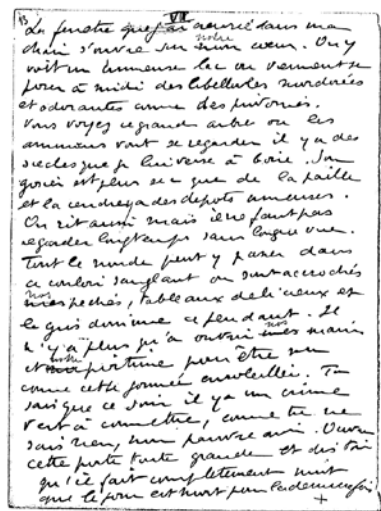 13 VII
La fenêtre que j'ai creusée dans ma
chair s'ouvre sur mon notre cœur. On y
voit un immense lac où viennent se
poser à midi des libellules mordorées
et odorantes comme des pivoines.
Vous voyez ce grand arbre où les
animaux vont se regarder il y a des
siècles que je lui verse à boire. Son
gosier est plus sec que de la paille
et la cendre y a des dépôts immenses.
On rit aussi mais il ne faut pas
regarder longtemps sans longue vue.
Tout le monde peut y passer dans
ce couloir sanglant où sont accrochés
mes nos péchés, tableaux délicieux et
le gris domine cependant. Il
n'y a plus qu'à ouvrir mes nos mains
et ma notre poitrine pour être nu
comme cette journée ensoleillée. Tu
sais que ce soir il y a un crime
vert à commettre, comme tu ne
sais rien, mon pauvre ami. Ouvre
cette porte toute grande et dis toi
qu'il fait complètement nuit
que le jour est mort pour la dernière fois